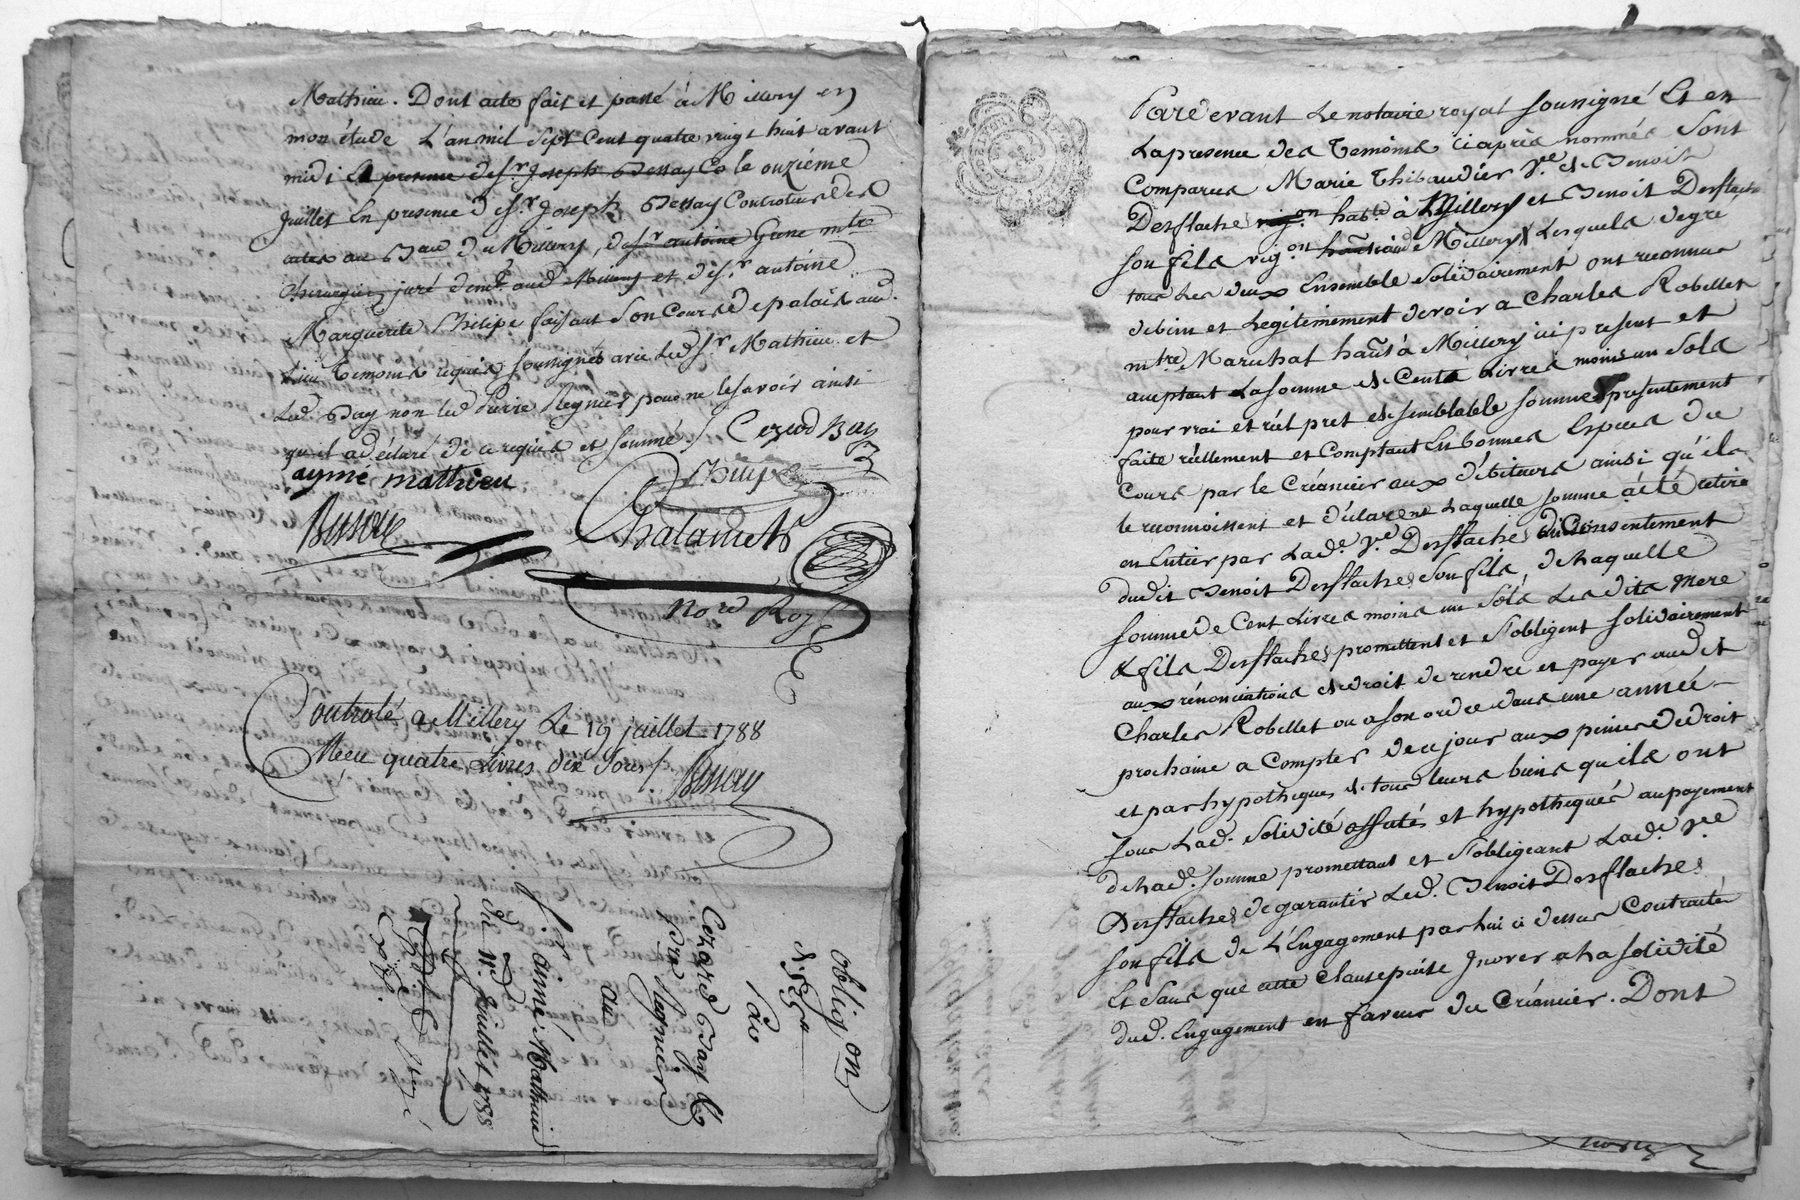 Mathieu. Dont acte fait et passé à Millery en
mon étude L'an mil sept Cent quatre vingt huit avant
midi la presence de sr Joseph Bessay Co le onziéme
Juillet En presence de sr Joseph Bessay Controleur des
actes au Bau de Millery, de sr antoine Grene mtre
Chirurgien juré demt aud Millery et de sr antoine
Marguerite Phelipe faisant Son Cours de palais aud.
Lieu temoins requis soussignés avec Led sr Mathieu et
Led Bay non led Pierre Reynier pour ne le savoir ainsi
qu'il a déclaré de ce requis et sommé / Cezard Bay
aymé mathieu
Phelipe
Bessay
Chalandets
Nore Roy
Controlé a Millery Le 19 juillet 1788
Reçu quatre Livres dix Sous /. Bessay
oblig.on
de 525#
Par
Cezard Bay &
Pre Reynier
au
Sr aimé Mathieu
du 11 Juillet 1788
Pardevant Le notaire royal soussigné Et en
La presence des temoins ci après nommés Sont
Comparus Marie Thibaudier Ve. de Benoit
Desflaches vig.on habte à Millery et Benoit Desflaches
son fils vig.on habitant de Millery Lesquels de gré
tous Les deux Ensemble Solidairement ont reconnus
debvoir et Legitimement devoir a Charles Robellet
mtre Marechal habt à Millery ici present et
aceptant La somme de Cents Livres moins un Sols
pour vrai et réel pret de semblable somme presentement
faite réellement et Comptant En bonnes Especes du
Cours par le Créancier aux débiteurs ainsi qu'ils
le reconnoissent et déclarent Laquelle somme a été retiré
en Entier par Lade. Ve Desflaches du Consentement
dudit Benoit Desflaches son fils, de Laquelle
somme de Cent Livres moins un Sols Les dits Mere
& fils Desflaches promettent et S'obligent solidairement
aux rénonciations de droit de rendre et payer audit
Charles Robellet ou a son ordre dans une année
prochaine a Compter de ce jour aux peines de droit
et par hypotheques de tous leurs biens qu'ils ont
sous Lad. Solidité affecté et hypothequés au payement
de Lade. Somme promettant et S'obligeant Lade Ve
Desflaches de garantir Led. Benoit Desflaches
son fils de L'Engagement par lui ci dessus Contracté
Et Sans que cette Clause puisse Inover a La solidité
dud. Engagement en faveur du Créancier. Dont